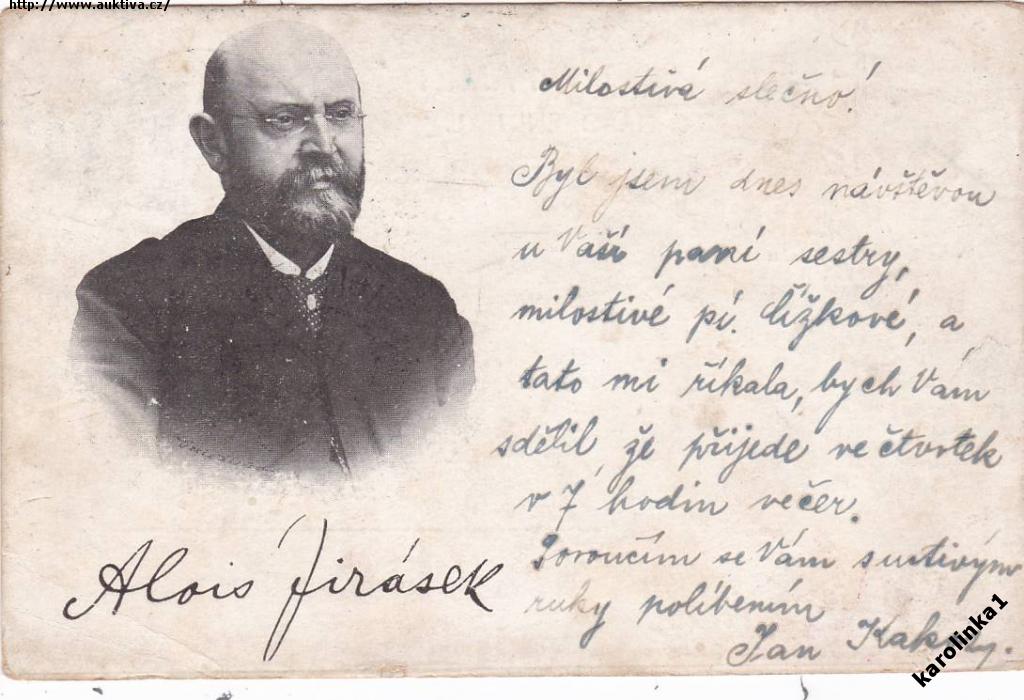 http://www.auktiva.cz/
Milostivá slečno!
Byl jsem dnes návštěvou
u Vaší paní sestry,
milostivé pí. Čížkové, a
tato mi říkala, bych Vám
sdělil že přijede ve čtvrtek
v 7 hodin večer.
Poroučím se Vám s uctivým
ruky políbením
Jan
Alois Jirásek
karolinka1